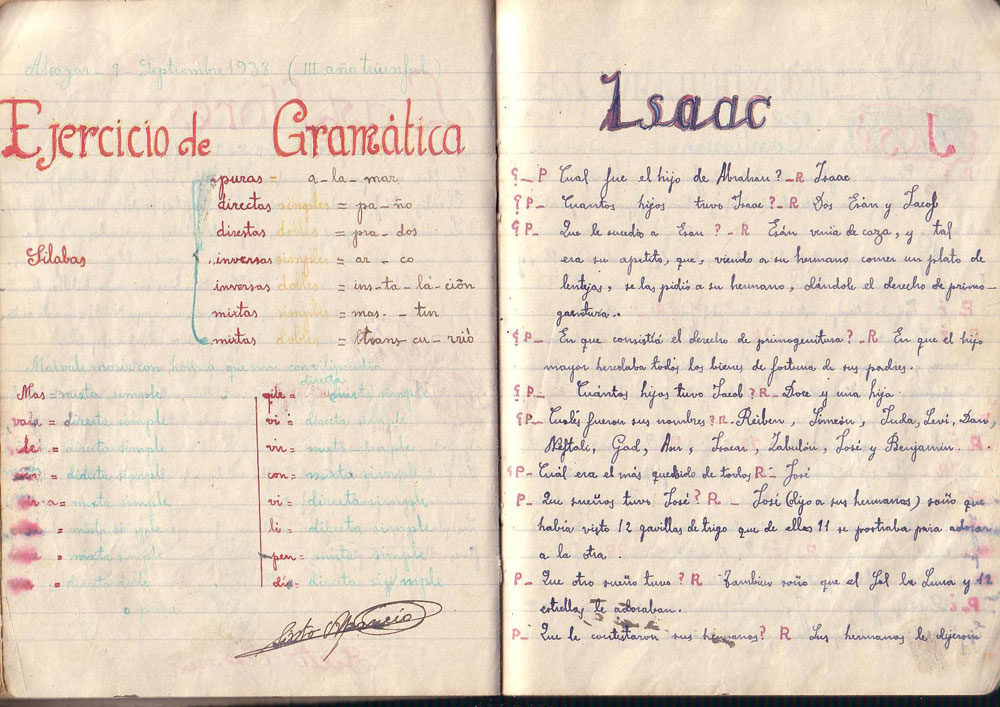 Alcazar - 8 Septiembre 1938 (III año triunfal)
Ejercicio de Gramática
puras = a-la-mar
directas simples = pa-ño
direstas dobles = pra-dos
Silabas
inversas simples = ar-co
inversas dobles = ins-ta-la-ción
mixtas simples = mas.-tin
mixtas dobles = trans-cu-rrió
Mas vale morir con honra que vivir con vilipendio
directa
Mas = mixta simple
vale = directa simple
directa simple
directa simple
mixta simple
mixta simple
directa
o pura
que = mixta simple
vi = directa simple
vir = mixta simple
con = mixta simple
vi = directa simple
li = directa simple
pen = mixta simple
dio = directa simple
Sixto Aparicio
Isaac
P Cual fue el hijo de Abrahan? - R Isaac
P- Cuantos hijos tuvo Isaac? - R Dos Esán y Jacob
P- Que le sucedio a Esau? - R Esán venia de caza, y tal
era su apetito, que, viendo a su hermano comer un plato de
lentejas, se las pidió a su hermano, dándole el derecho de primo-
genitura.
P- En que consistiá el derecho de primogenitura? - R En que el hijo
mayor heredaba todos los bienes de fortuna de sus padres.
P- Cuántos hijos tuvo Jacob? - R - Doce y una hija.
P- Cuales fueron sus nombres? R. Reiben, Simeón, Juda, Levi, Dan,
Neftali, Gad, Aser, Isacar, Zabulón, José y Benjamin.
P- Cuál era el más querido de todos R - José
P- Que sueños tuvo José? R - José (dijo a sus hermanos) soño que
habia visto 12 gavillas de trigo que de ellas 11 se postraba para adorar
a la otra.
P- Que otro sueño tuvo? R Tambien soño que el Sol la Luna y 12
estrellas te adoraban.
P- Que le contestaron sus hermanos? R Sus hermanos le dijeron